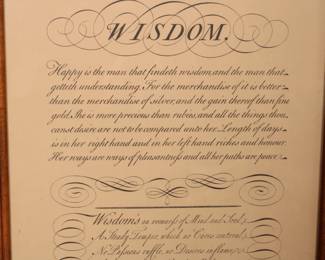 WISDOM.
Happy is the man that findeth wisdom, and the man that
getteth understanding. For the merchandise of it is better
than the merchandise of silver, and the gain thereof than fine
gold. She is more precious than rubies, and all the things thou
canst desire are not to be compared unto her. Length of days
is in her right hand and in her left hand riches and honour.
Her ways are ways of pleasantness and all her paths are peace
Wisdom's an evenness of Mind and Soul,
A Steady Temper, which no Cares controul
No Passions ruffle, no Desires inflame